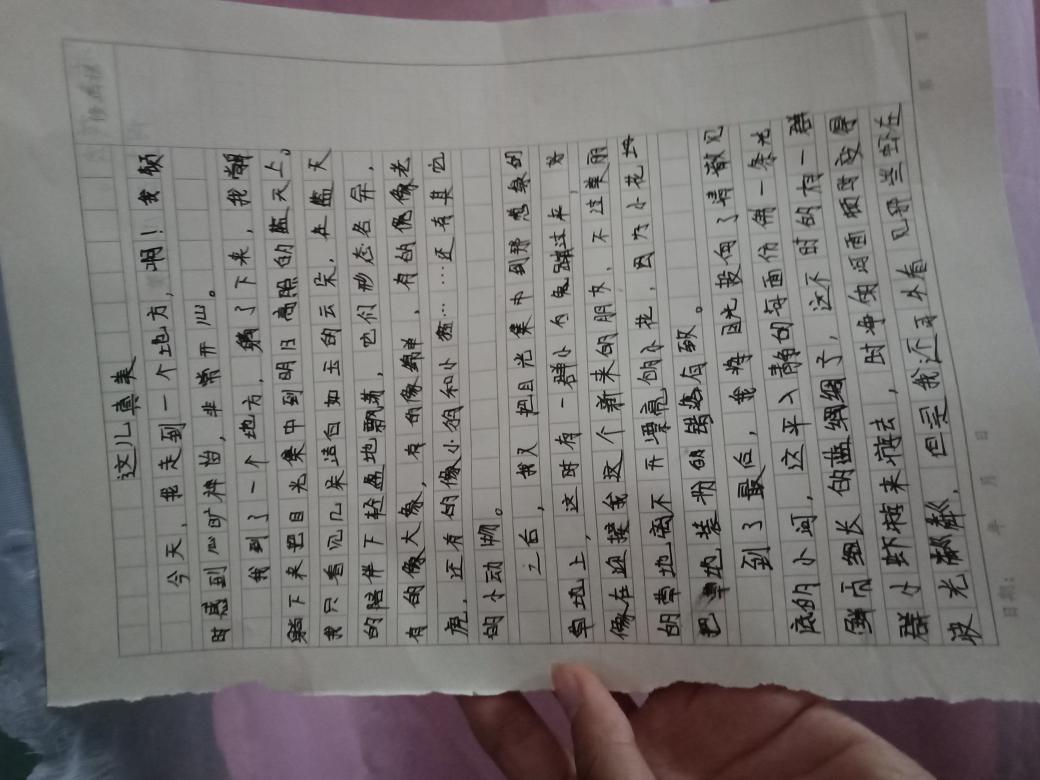 这儿真美
今天，我走到一个地方，啊！我顿
时感到心旷神怡，非常开心。
我到了一个地方，躺了下来，我躺
躺下来把目光集中到明日高照的蓝天上。
我只看见几朵洁白如玉的云朵，在蓝天
的陪伴下轻盈地飘荡，它们形态各异，
有的像大象，有的像绵羊，有的像老
虎，还有的像小狗和小猪……还有其它
的小动物。
之后，我又把目光集中到那
草地上，这时有一群小白兔蹦过来，
像在迎接我这个新来的朋友，不过美丽
的草地离不开漂亮的小花，因为小花
把草地装扮的错落有致。
到了最后，我将目光投向了清澈见
底的小河，这平入静的海面仿佛一条光
鲜而细长的蓝绸缎子，这不时的有一群
群小虾游来游去，时海面顿时变得
波光粼粼，但是我还
日期：
年
月
日